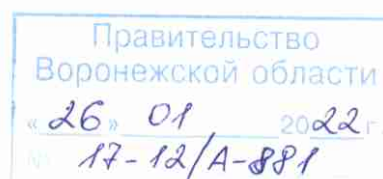 Правительство
Воронежской области
«26» 01 2022 г
№ 17-12/А-881